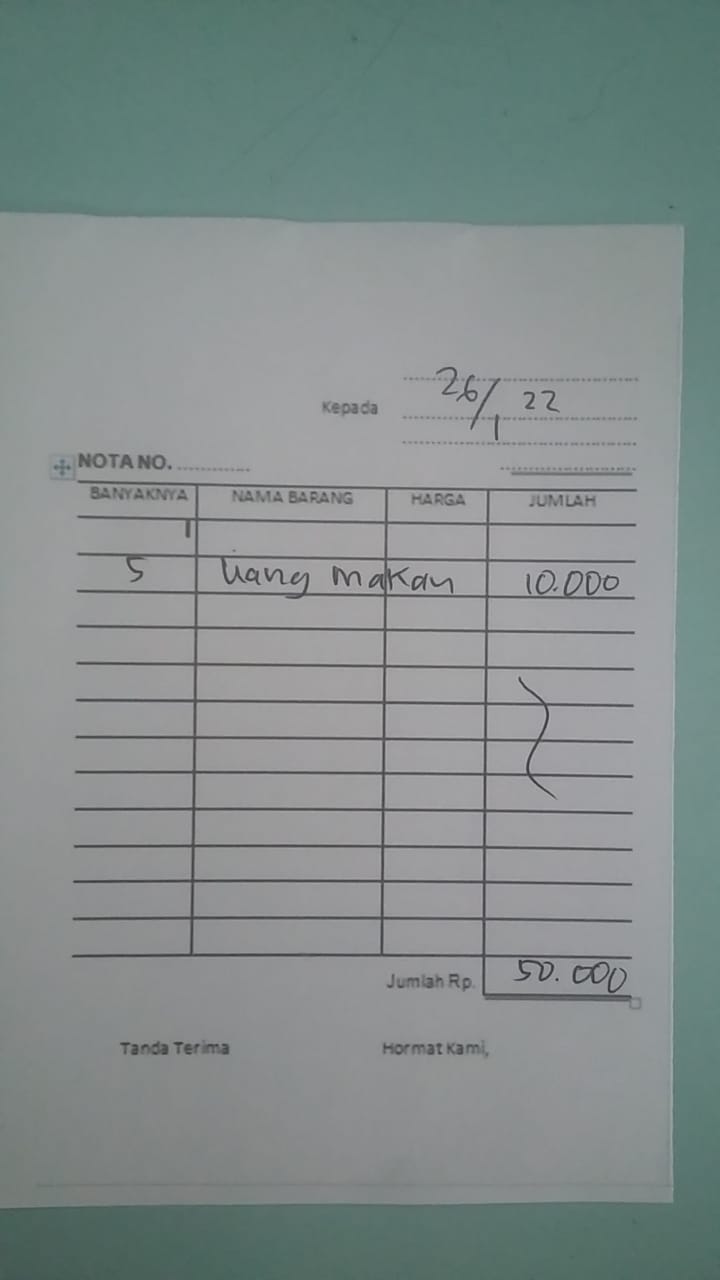 26/1 22
Kepada
NOTA NO. ..............
BANYAKNYA NAMA BARANG HARGA JUMLAH
5 Uang makan 10.000
Jumlah Rp. 50.000
Tanda Terima Hormat Kami,